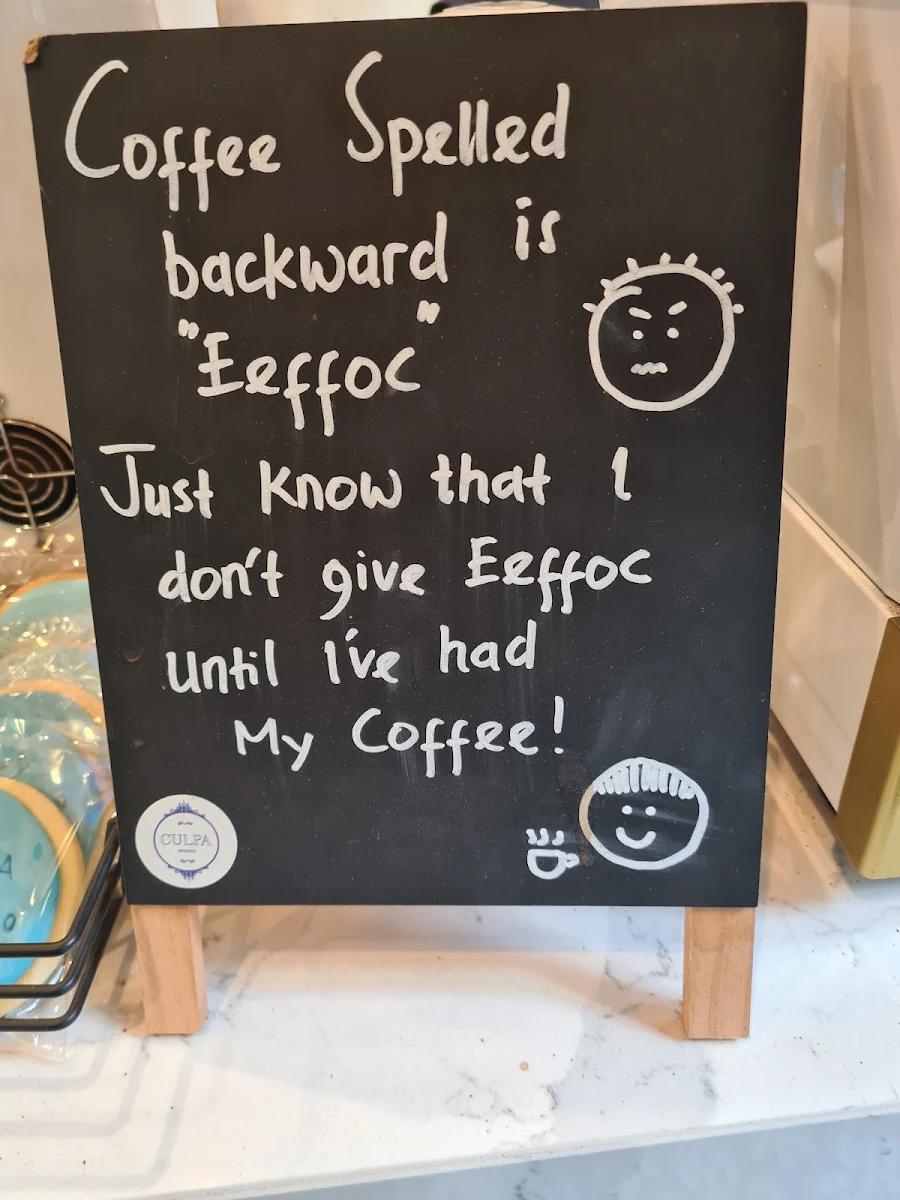 Coffee Spelled
backward is
"Eeffoc"
Just know that I
don't give Eeffoc
until I've had
My Coffee!
CULPA